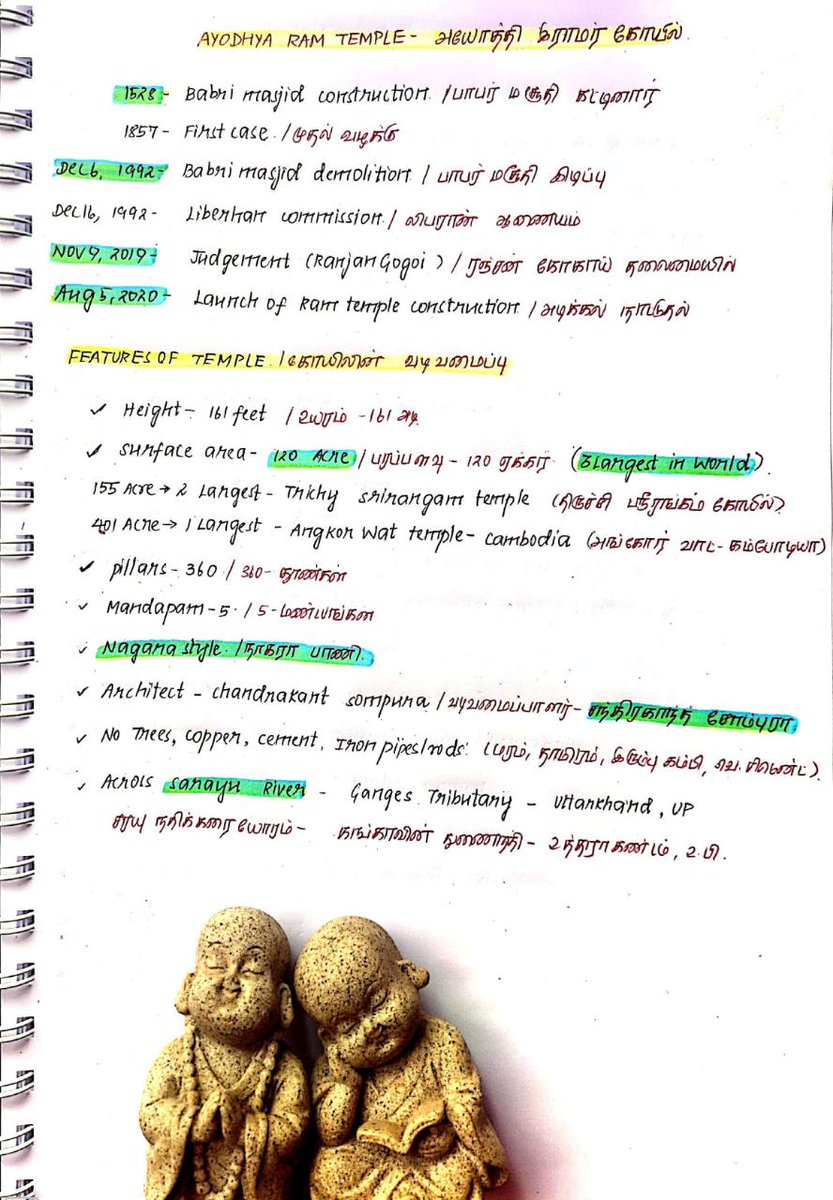 AYODHYA RAM TEMPLE - அயோத்தி இராமர் கோயில்
1528 - Babri masjid construction / பாபர் மசூதி கட்டினார்
1857 - First case / முதல் வழக்கு
Dec 6, 1992 - Babri masjid demolition / பாபர் மசூதி இடிப்பு
Dec 16, 1992 - Liberhan commission / லிபரான் ஆணையம்
Nov 9, 2019 - Judgement (Ranjan Gogoi) / ரஞ்சன் கோகாய் தலைமையில்
Aug 5, 2020 - Launch of Ram temple construction / அடிக்கல் நாட்டுதல்
FEATURES OF TEMPLE / கோயிலின் வடிவமைப்பு
✓ Height - 161 feet / உயரம் - 161 அடி
✓ surface area - 120 Acre / பரப்பளவு - 120 ஏக்கர் (3 Largest in World)
155 Acre → 2 Largest - Trichy srirangam temple (திருச்சி ஸ்ரீரங்கம் கோயில்)
401 Acre → 1 Largest - Angkor wat temple - Cambodia (அங்கோர் வாட் - கம்போடியா)
✓ pillars - 360 / 360 - தூண்கள்
✓ Mandapam - 5 / 5 - மண்டபங்கள்
✓ Nagara style / நாகரா பாணி
✓ Architect - chandrakant sompura / வடிவமைப்பாளர் - சந்திரகாந்த் சோம்புரா
✓ No Trees, copper, cement, Iron pipes/rods (மரம், தாமிரம், இரும்பு கம்பி, சிமெண்ட்)
✓ Across Sarayu River - Ganges Tributary - Uttarkhand, UP
சரயு நதிக்கரையோரம் - கங்காவின் துணைநதி - உத்தராகண்டம், உ.பி.